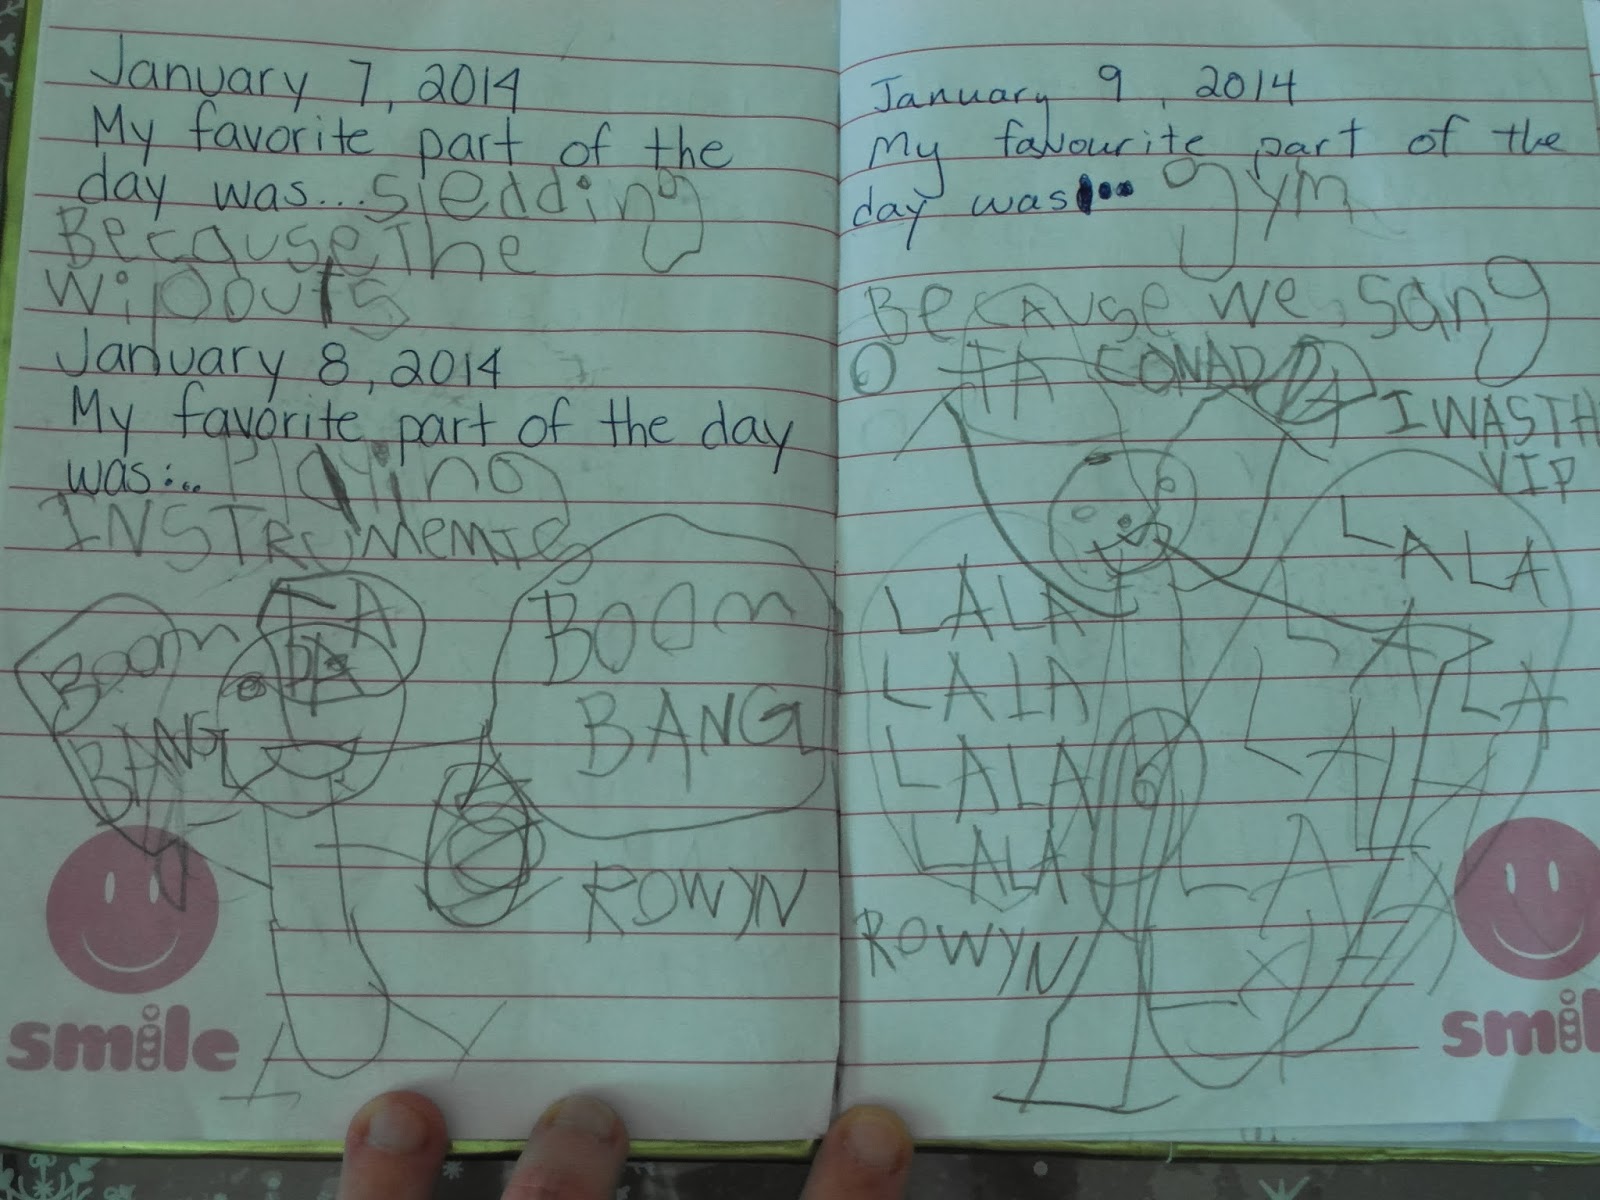 January 7, 2014
My favorite part of the
day was...sledding
Because The
wipouts
January 8, 2014
My favorite part of the day
was... Playing
INSTRuMeMTS
Boom
BANG
TA
DA
BOOm
BANG
ROWYN
smile
January 9, 2014
My favourite part of the
day was... gym
BecAuse we sang
O TA CONADA
I WAS TH
VIP
LALA
LALA
LALA
LALA
LALA
LALA
LALA
LA
ROWYN
smil